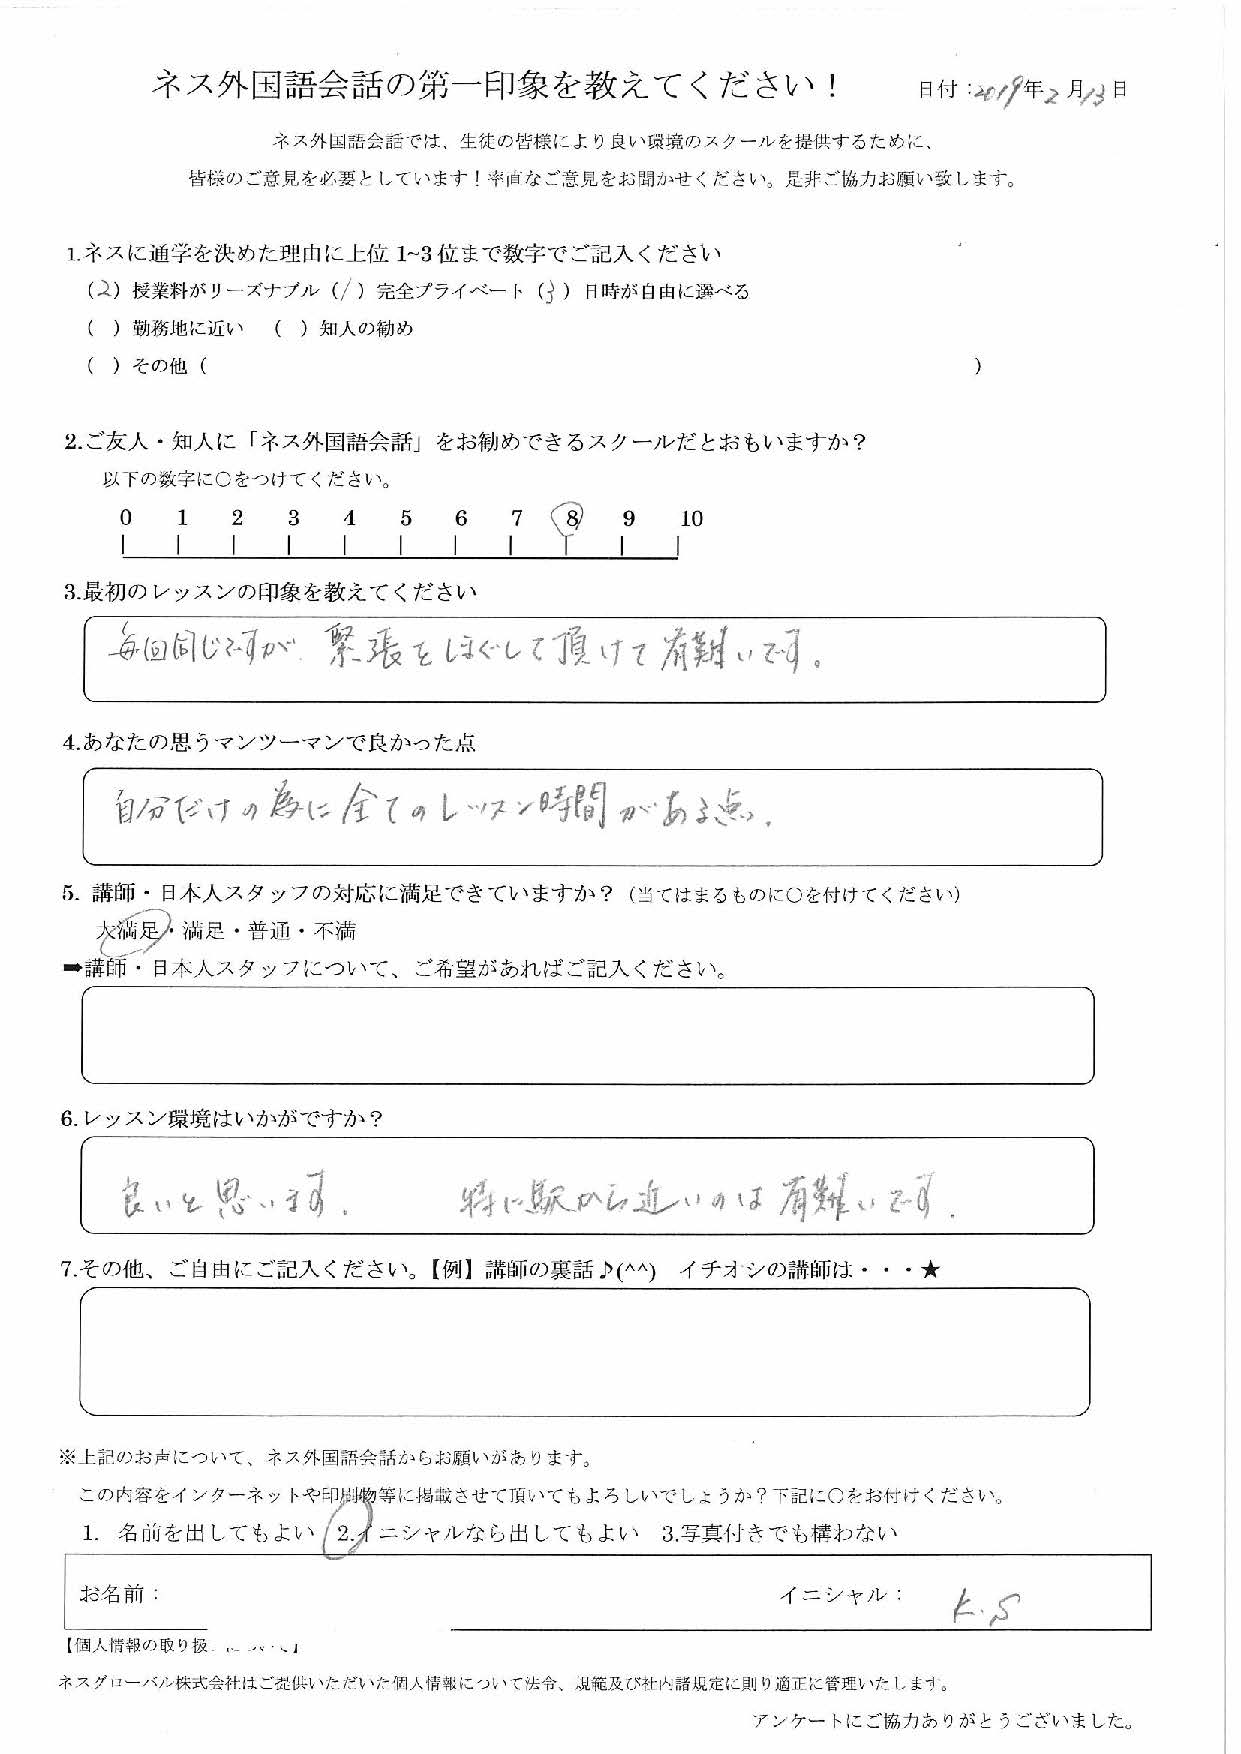 ネス外国語会話の第一印象を教えてください！ 日付：2019年2月13日
ネス外国語会話では、生徒の皆様により良い環境のスクールを提供するために、
皆様のご意見を必要としています！率直なご意見をお聞かせください。是非ご協力お願い致します。
1.ネスに通学を決めた理由に上位 1~3 位まで数字でご記入ください
（2）授業料がリーズナブル（1）完全プライベート（3）日時が自由に選べる
（ ）勤務地に近い （ ）知人の勧め
（ ）その他（ ）
2.ご友人・知人に「ネス外国語会話」をお勧めできるスクールだとおもいますか？
以下の数字に〇をつけてください。
0 1 2 3 4 5 6 7 8 9 10
3.最初のレッスンの印象を教えてください
毎回同じですが、緊張をほぐして頂けて有難いです。
4.あなたの思うマンツーマンで良かった点
自分だけの為に全てのレッスン時間がある点。
5. 講師・日本人スタッフの対応に満足できていますか？（当てはまるものに〇を付けてください）
大満足・満足・普通・不満
➡講師・日本人スタッフについて、ご希望があればご記入ください。
6.レッスン環境はいかがですか？
良いと思います。 特に駅から近いのは有難いです。
7.その他、ご自由にご記入ください。【例】講師の裏話♪(^^) イチオシの講師は・・・★
※上記のお声について、ネス外国語会話からお願いがあります。
この内容をインターネットや印刷物等に掲載させて頂いてもよろしいでしょうか？下記に〇をお付けください。
1. 名前を出してもよい 2.イニシャルなら出してもよい 3.写真付きでも構わない
お名前： イニシャル： K.S
【個人情報の取り扱
ネスグローバル株式会社はご提供いただいた個人情報について法令、規範及び社内諸規定に則り適正に管理いたします。
アンケートにご協力ありがとうございました。